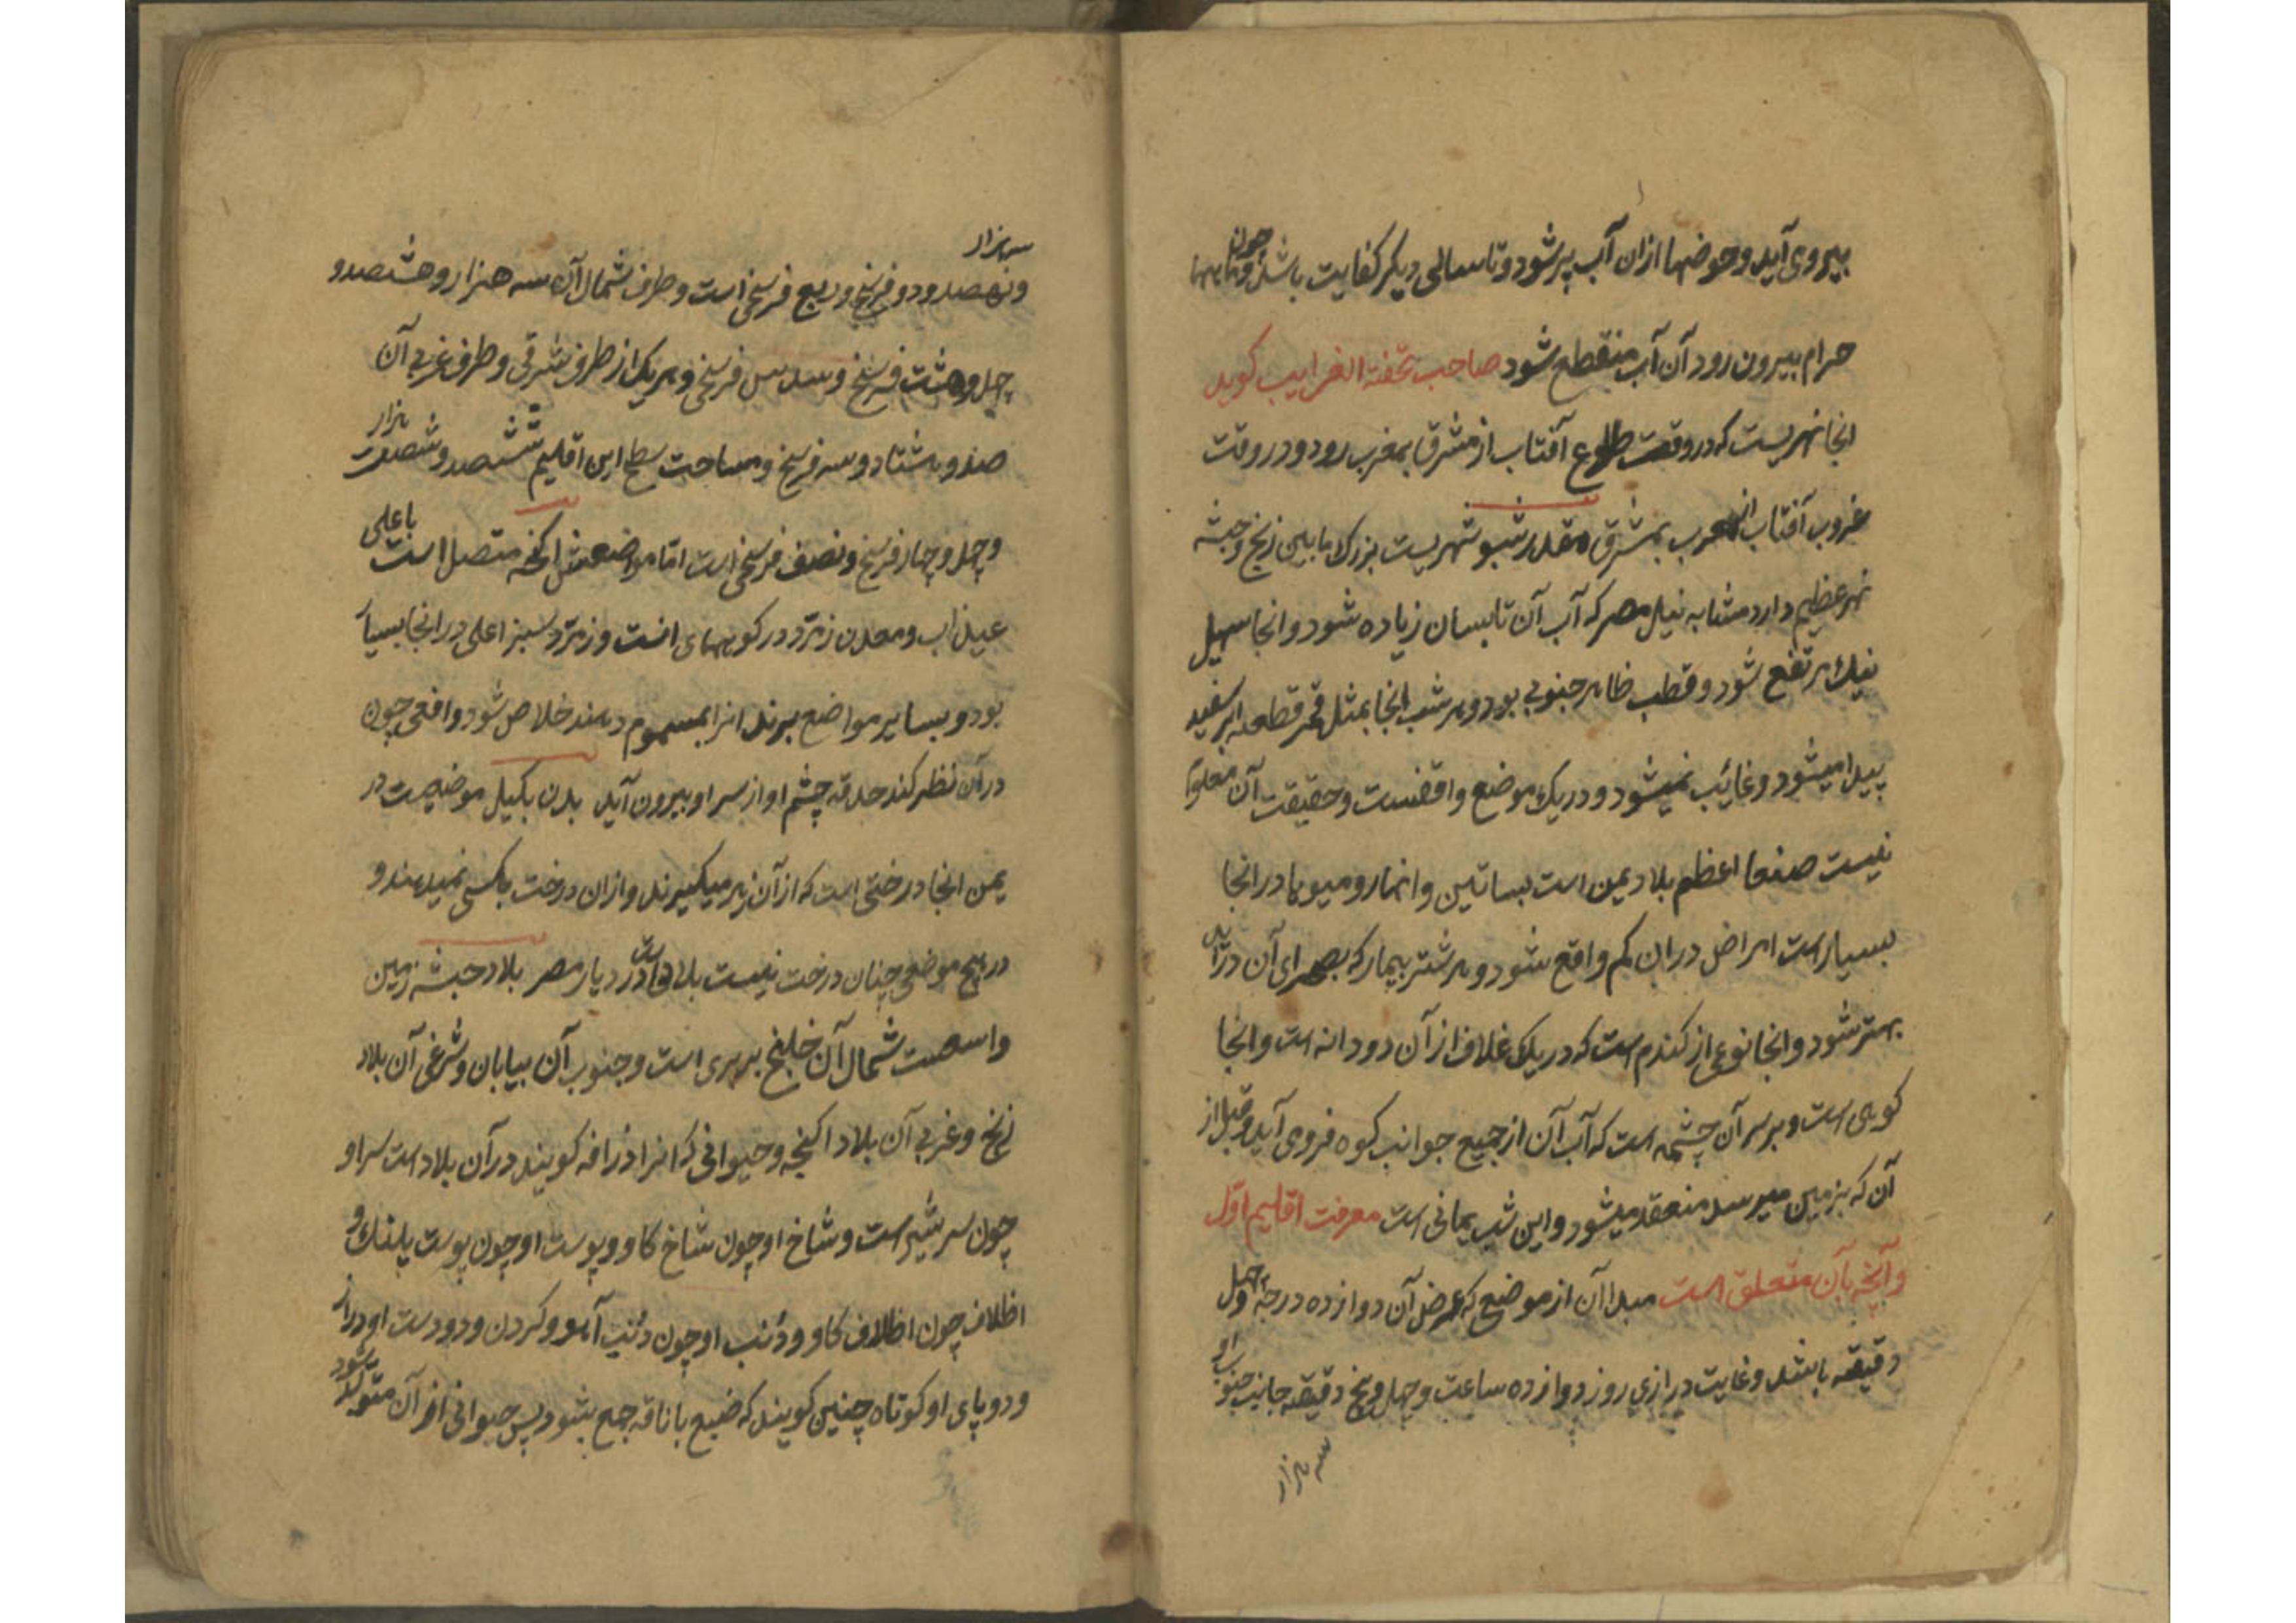 بیروی آید و حوضها ازان آب پر شود و تا سالی دیکر کفایت باشد و چون ماهها
حرام بیرون رود آن آب منقطع شود صاحب تحفة الغرایب کوید
انجا نهریست که در وقت طلوع آفتاب از مشرق بمغرب رود و در وقت
غروب آفتاب از مغرب بمشرق مقدرشو شهریست بزرک مابین زنج و حبشه
نهر عظیم دارد مشابه نیل مصر که آب آن تابستان زیاده شود و انجا سهیل
نیک مرتفع شود و قطب ظاهر جنوبی بود و هر شب انجا بمثل قمر قطعه ابر سفید
پیدا میشود و غائب نمیشود و در یک موضع واقفست و حقیقت آن معلوم
نیست صنعا اعظم بلاد یمن است بساتین و انهار و میوها در انجا
بسیار است امراض دران کم واقع شود و هر شتر بیمار که بصحرای آن در آید
بهتر شود و انجا نوعی از کندم است که در یک غلاف از آن دو دانه است و انجا
کوهی است و بر سر آن چشمه است که آب آن از جمیع جوانب کوه فرو می آید و قبل از
آن که بزمین میرسد منعقد میشود و این شب یمانی است معرفت اقلیم اول
و آنچه بآن متعلق است مبدا آن از موضع که عرض آن دوازده درجه و چهل
دقیقه باشد و غایت درازی روز دوازده ساعت و چهل و پنج دقیقه جانب جنوب او
سه هزار
سه هزار
و نهصد و دو فرسخ و ربع فرسخی است و طرف شمال آن سه هزار و هشتصد و
چهل و هشت فرسخ و سدس فرسخی و هر یک از طرف شرقی و طرف غربی آن
صد و هشتاد و سه فرسخ و مساحت سطح این اقلیم ششصد و شصت هزار
و چهل و چهار فرسخ و نصف فرسخی است اما مواضعش اکخه متصل است باعلی
عیذاب و معدن زمرد در کوههای انست و زمرد سبز اعلی در انجا بسیار
بود و بسایر مواضع برند انرا بمسموم دهند خلاص شود و افعی چون
در آن نظر کند حدقه چشم او از سر او بیرون آید بدن بکیل موضعیست در
یمن انجا درختی است که از آن زهر میکیرند و ازان درخت بکسی نمیدهند و
در هیچ موضعی چنان درخت نیست در دیار مصر بلاد حبشه زمین
واسعست شمال آن خلیج بربری است و جنوب آن بیابان و شرقی آن بلاد
زنج و غربی آن بلاد اکنجه و حیوانی که انرا زرافه کویند در آن بلاد است سر او
چون سر شتر است و شاخ او چون شاخ کاو و پوست او چون پوست پلنک و
اظلاف چون اظلاف کاو و ذنب او چون ذنب آهو و کردن و دو دست او دراز
و دو پای او کوتاه چنین کویند که ضبع با ناقه جمع بشود پس حیوانی از آن متولد شود